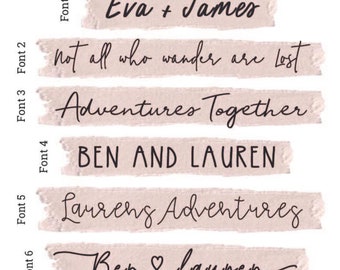 Eva + James
Font 2
Not all who wander are Lost
Font 3
Adventures Together
Font 4
BEN AND LAUREN
Font 5
Laurens Adventures
Font 6
Ben ♡ Lauren